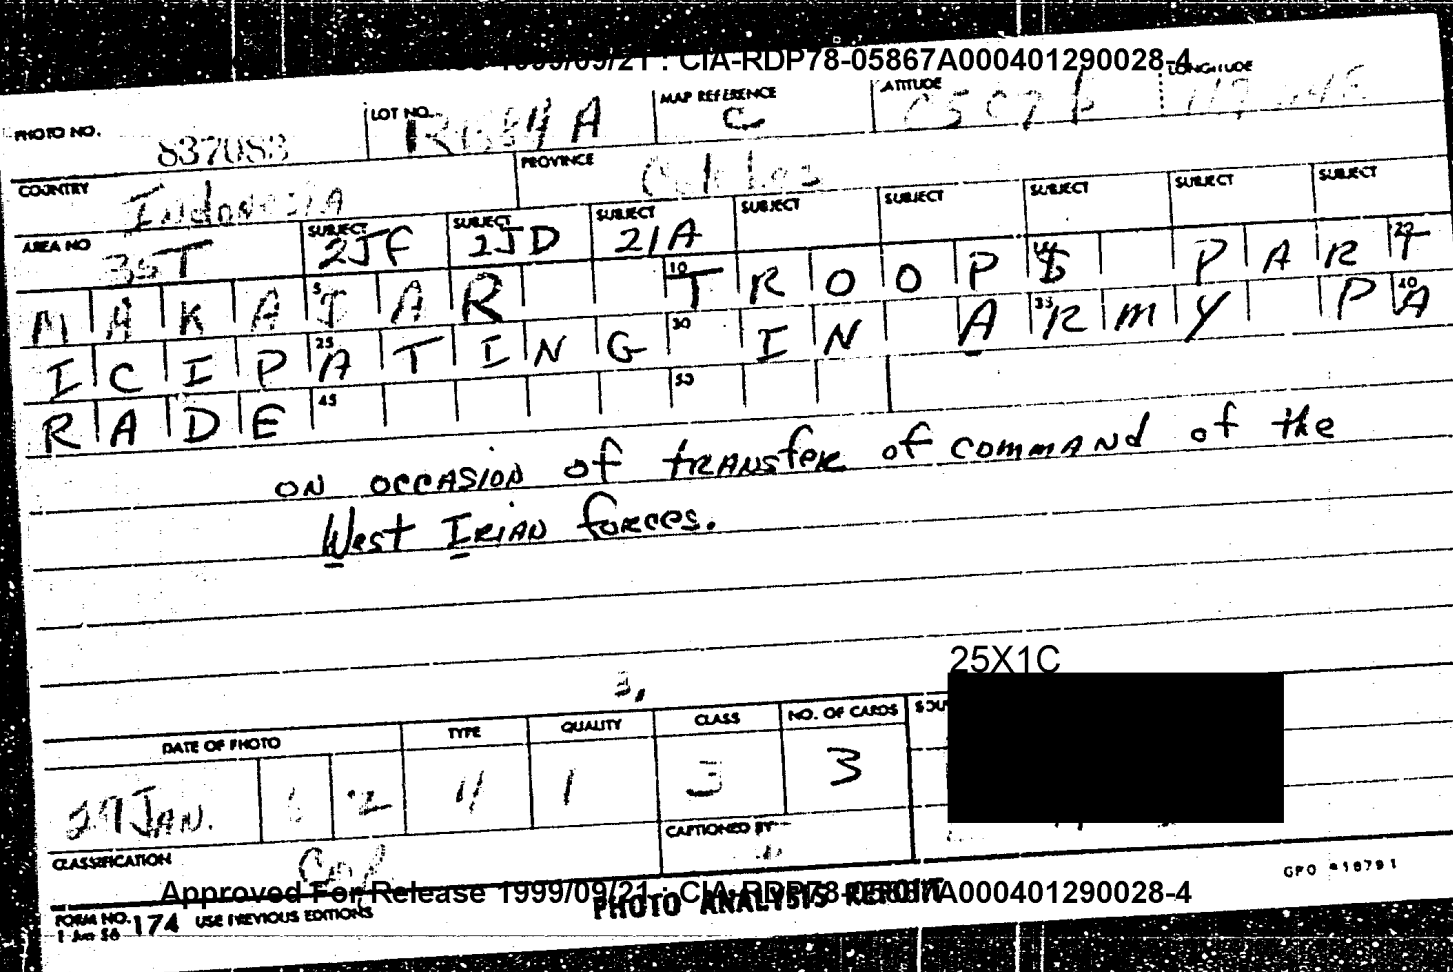 1999/09/21 : CIA-RDP78-05867A000401290028-4
PHOTO NO. 837083 LOT NO. MAP REFERENCE C LATITUDE LONGITUDE
COUNTRY Indonesia PROVINCE Celebes
AREA NO 35T SUBJECT 2JF SUBJECT 2JD SUBJECT 21A SUBJECT SUBJECT SUBJECT SUBJECT SUBJECT
MAKASSAR TROOPS PART
ICIPATING IN ARMY PA
RADE
ON OCCASION of tRANSfER of commANd of the
West IRIAN forces.
25X1C
3.
DATE OF PHOTO TYPE QUALITY CLASS NO. OF CARDS
JAN. 2 4 1 3 3
CLASSIFICATION CAPTIONED BY
GPO
Approved For Release 1999/09/21 : CIA-RDP78-05867A000401290028-4
FORM NO. 174 USE PREVIOUS EDITIONS PHOTO ANALYSIS REPORT
1 Jun 56